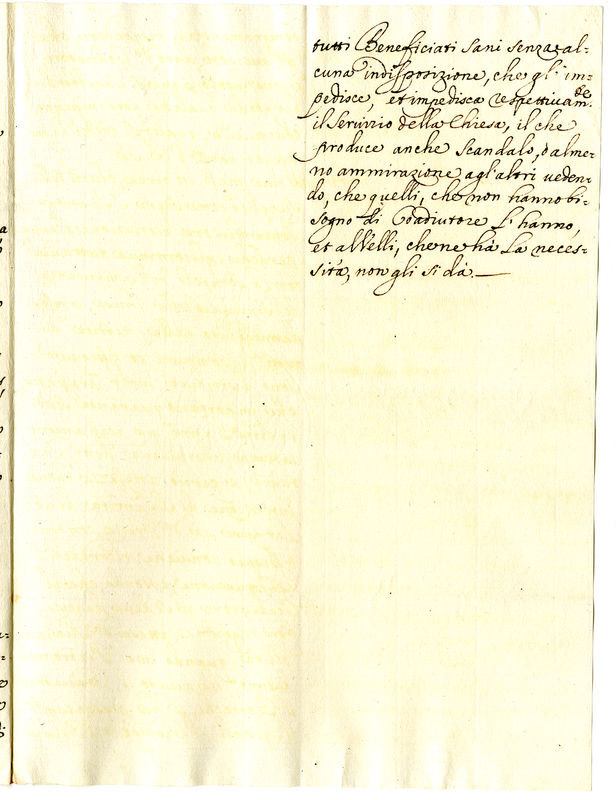 tutti Beneficiati sani senza al=
cuna indisposizione, che gl'im=
pedisce, et impedisca respettivam.te
il Servizio della Chiesa, il che
produce anche scandalo, o alme=
no ammirazione agl'altri veden=
do, che quelli, che non hanno bi=
sogno di Coadiutore l'hanno,
et a Velli, che ne ha la neces=
sità, non gli si dà.